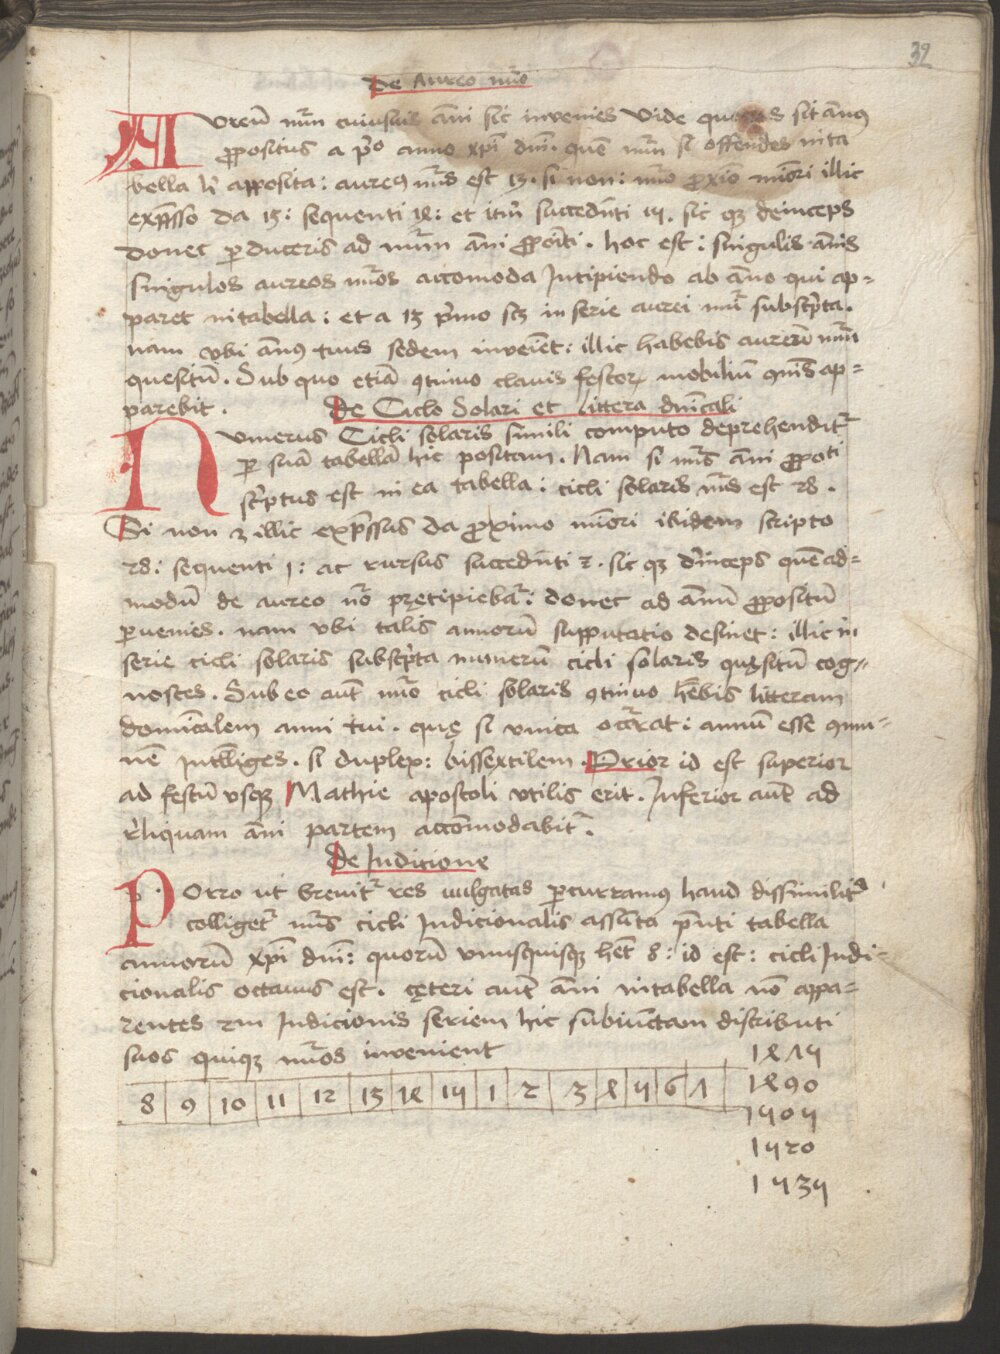 32
De Aureo nũo
AUreũ nũm cuiusuis ãni sic invenies Vide quotus sit ãnus
ꝓpositus a pͦ anno xp̃i dñi quẽ nũm si offendes in ta
bella h̃ apposita: aureus nũs est 13. si non: nũo ꝓxio mĩori illic
exp̃sso da 13: sequenti 14: et itẽ succedẽti 15. sic qꝫ deinceps
donec ꝑduceris ad nũm ãni ꝓpoĩti. hoc est: singulis ãnis
singulos aureos nũos accomoda Incipiendo ab ãno qui ap-
paret in tabella: et a 13 p̃mo scꝫ in serie aurei nũi subscp̃ta.
nam ubi ãnus tuus sedem inveĩet: illic habebis aureũ nũm
quesitũ. Sub quo etiã ꝯtinuo clavis festoꝝ mobiliũ ꝯñis ap-
parebit.
De Ciclo Solari et littera dñicali
NUmerus Cicli solaris simili computo deprehenditᷣ
ꝑ suã tabellã hic positam. Nam si nũs ãni ꝓpoĩti
sc̃ptus est in ea tabella: cicli solaris nũs est 28.
Si non ꝫ illic exp̃ssus da ꝓximo mĩori ibidem scripto
28: sequenti 1: ac rursus succedẽti 2. sic qꝫ d̃inceps quẽad-
modũ de aureo nũo pręcipiebãt: donec ad ãnũ ꝓpositũ
ꝑuenies. nam ubi talis annorũ supputatio desinet: illic in
serie cicli solaris subscp̃ta numerũ cicli solaris quęsitũ cog-
nosces. Sub eo aũt nũo cicli solaris ꝯtinuo hẽbis litteram
domĩcalem anni tui. quę si unica occ̃rat: annũ esse ꝯmu-
nẽ intell̃iges. si duplex: bissextilem. Prior id est superior
ad festũ usqꝫ Mathie apostoli utilis erit. Inferior aũt ad
r̃liquam ãni partem accõmodabitᷣ.
De Indicione
POrro ut brevitᷣ res vulgatas ꝑcurramus haud dissimilitᷣ
colligetᷣ nũs cicli Indicionalis assũta p̃nti tabella
annorũ xp̃i dñi: quorũ unusquisqꝫ hẽt 8: id est: cicli Indi-
cionalis octavus est. cęteri aũt ãni in tabella nõ appa-
rentes ꝑ Indicionis seriem hic subiunctam distributi
suos quiqꝫ nũos invenient
8 9 10 11 12 13 14 15 1 2 3 4 5 6 7
1475
1490
1505
1520
1535